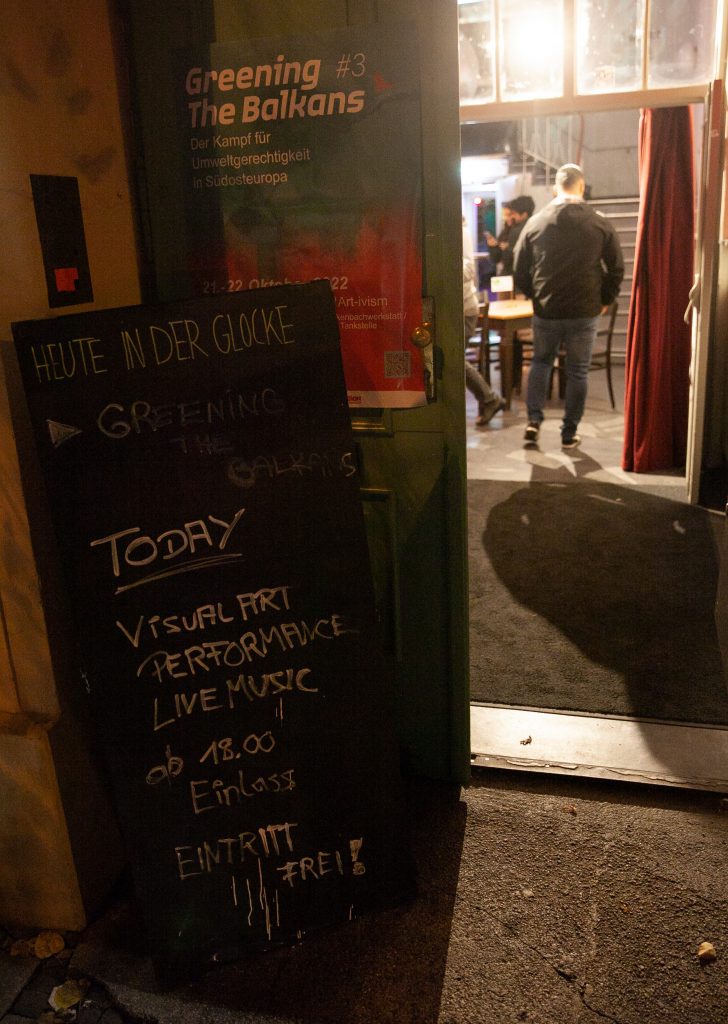 Greening #3
The Balkans
Der Kampf für
Umweltgerechtigkeit
in Südosteuropa
21.-22. Oktober 2022
Art-ivism
Tankstelle
HEUTE IN DER GLOCKE
GREENING
THE
BALKANS
TODAY
VISUAL ART
PERFORMANCE
LIVE MUSIC
ab 18.00
Einlass
EINTRITT
FREI!